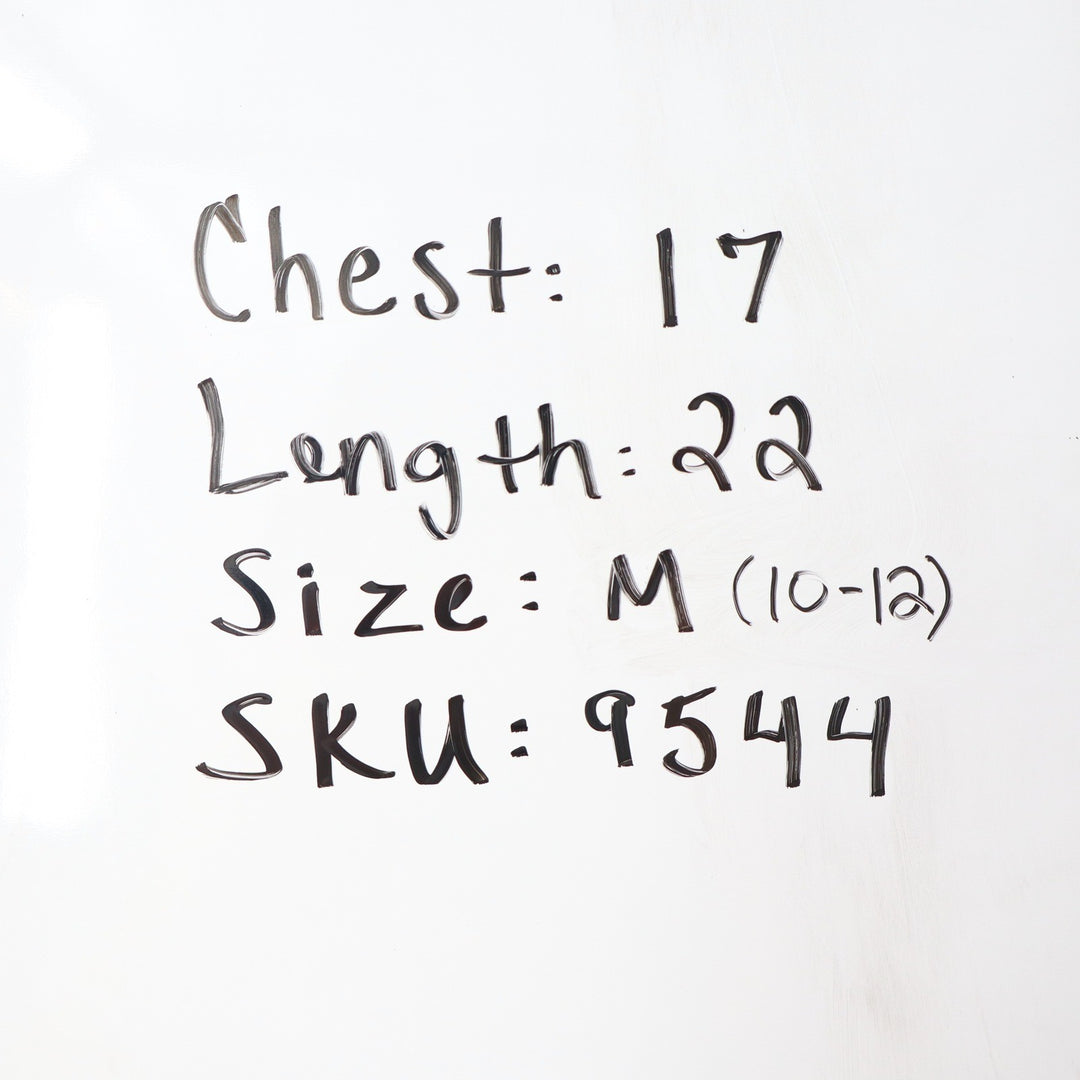 Chest: 17
Length: 22
Size: M (10-12)
SKU: 9544